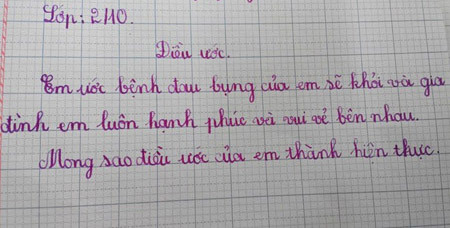 Lớp: 2/10.
Điều ước.
Em ước bệnh đau bụng của em sẽ khỏi và gia
đình em luôn hạnh phúc và vui vẻ bên nhau.
Mong sao điều ước của em thành hiện thực.